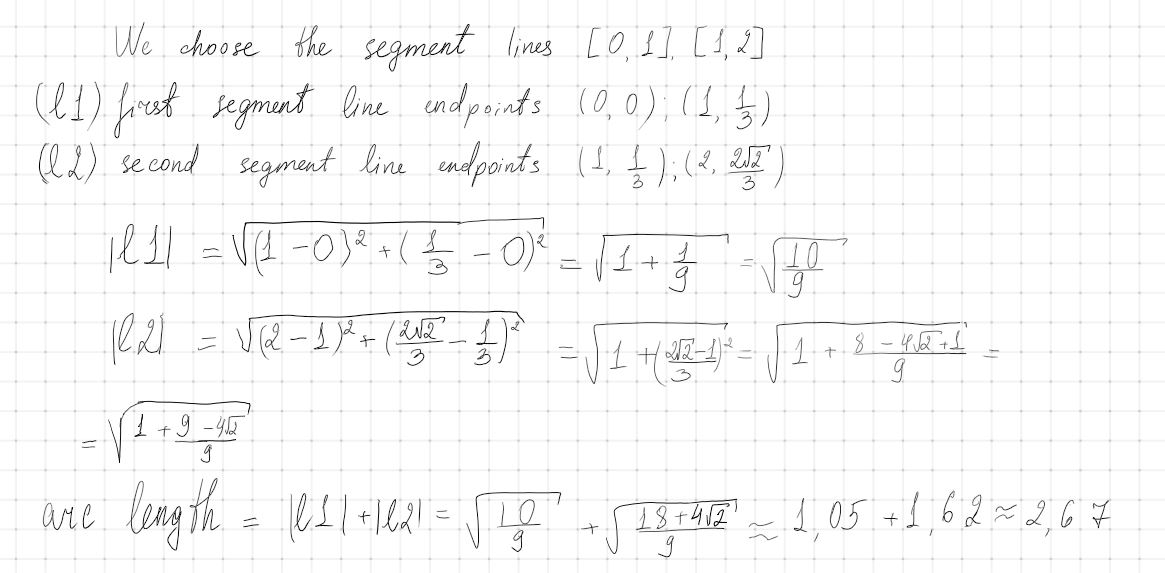 We choose the segment lines [0, 1], [1, 2]
(l1) first segment line endpoints (0, 0); (1, 1/3)
(l2) second segment line endpoints (1, 1/3); (2, 2√2/3)
|l1| = √((1 - 0)² + (1/3 - 0)²) = √(1 + 1/9) = √(10/9)
|l2| = √((2 - 1)² + (2√2/3 - 1/3)²) = √(1 + ((2√2 - 1)/3)²) = √(1 + (8 - 4√2 + 1)/9) =
= √(1 + (9 - 4√2)/9)
arc length = |l1| + |l2| = √(10/9) + √((18 + 4√2)/9) ≈ 1,05 + 1,62 ≈ 2,67